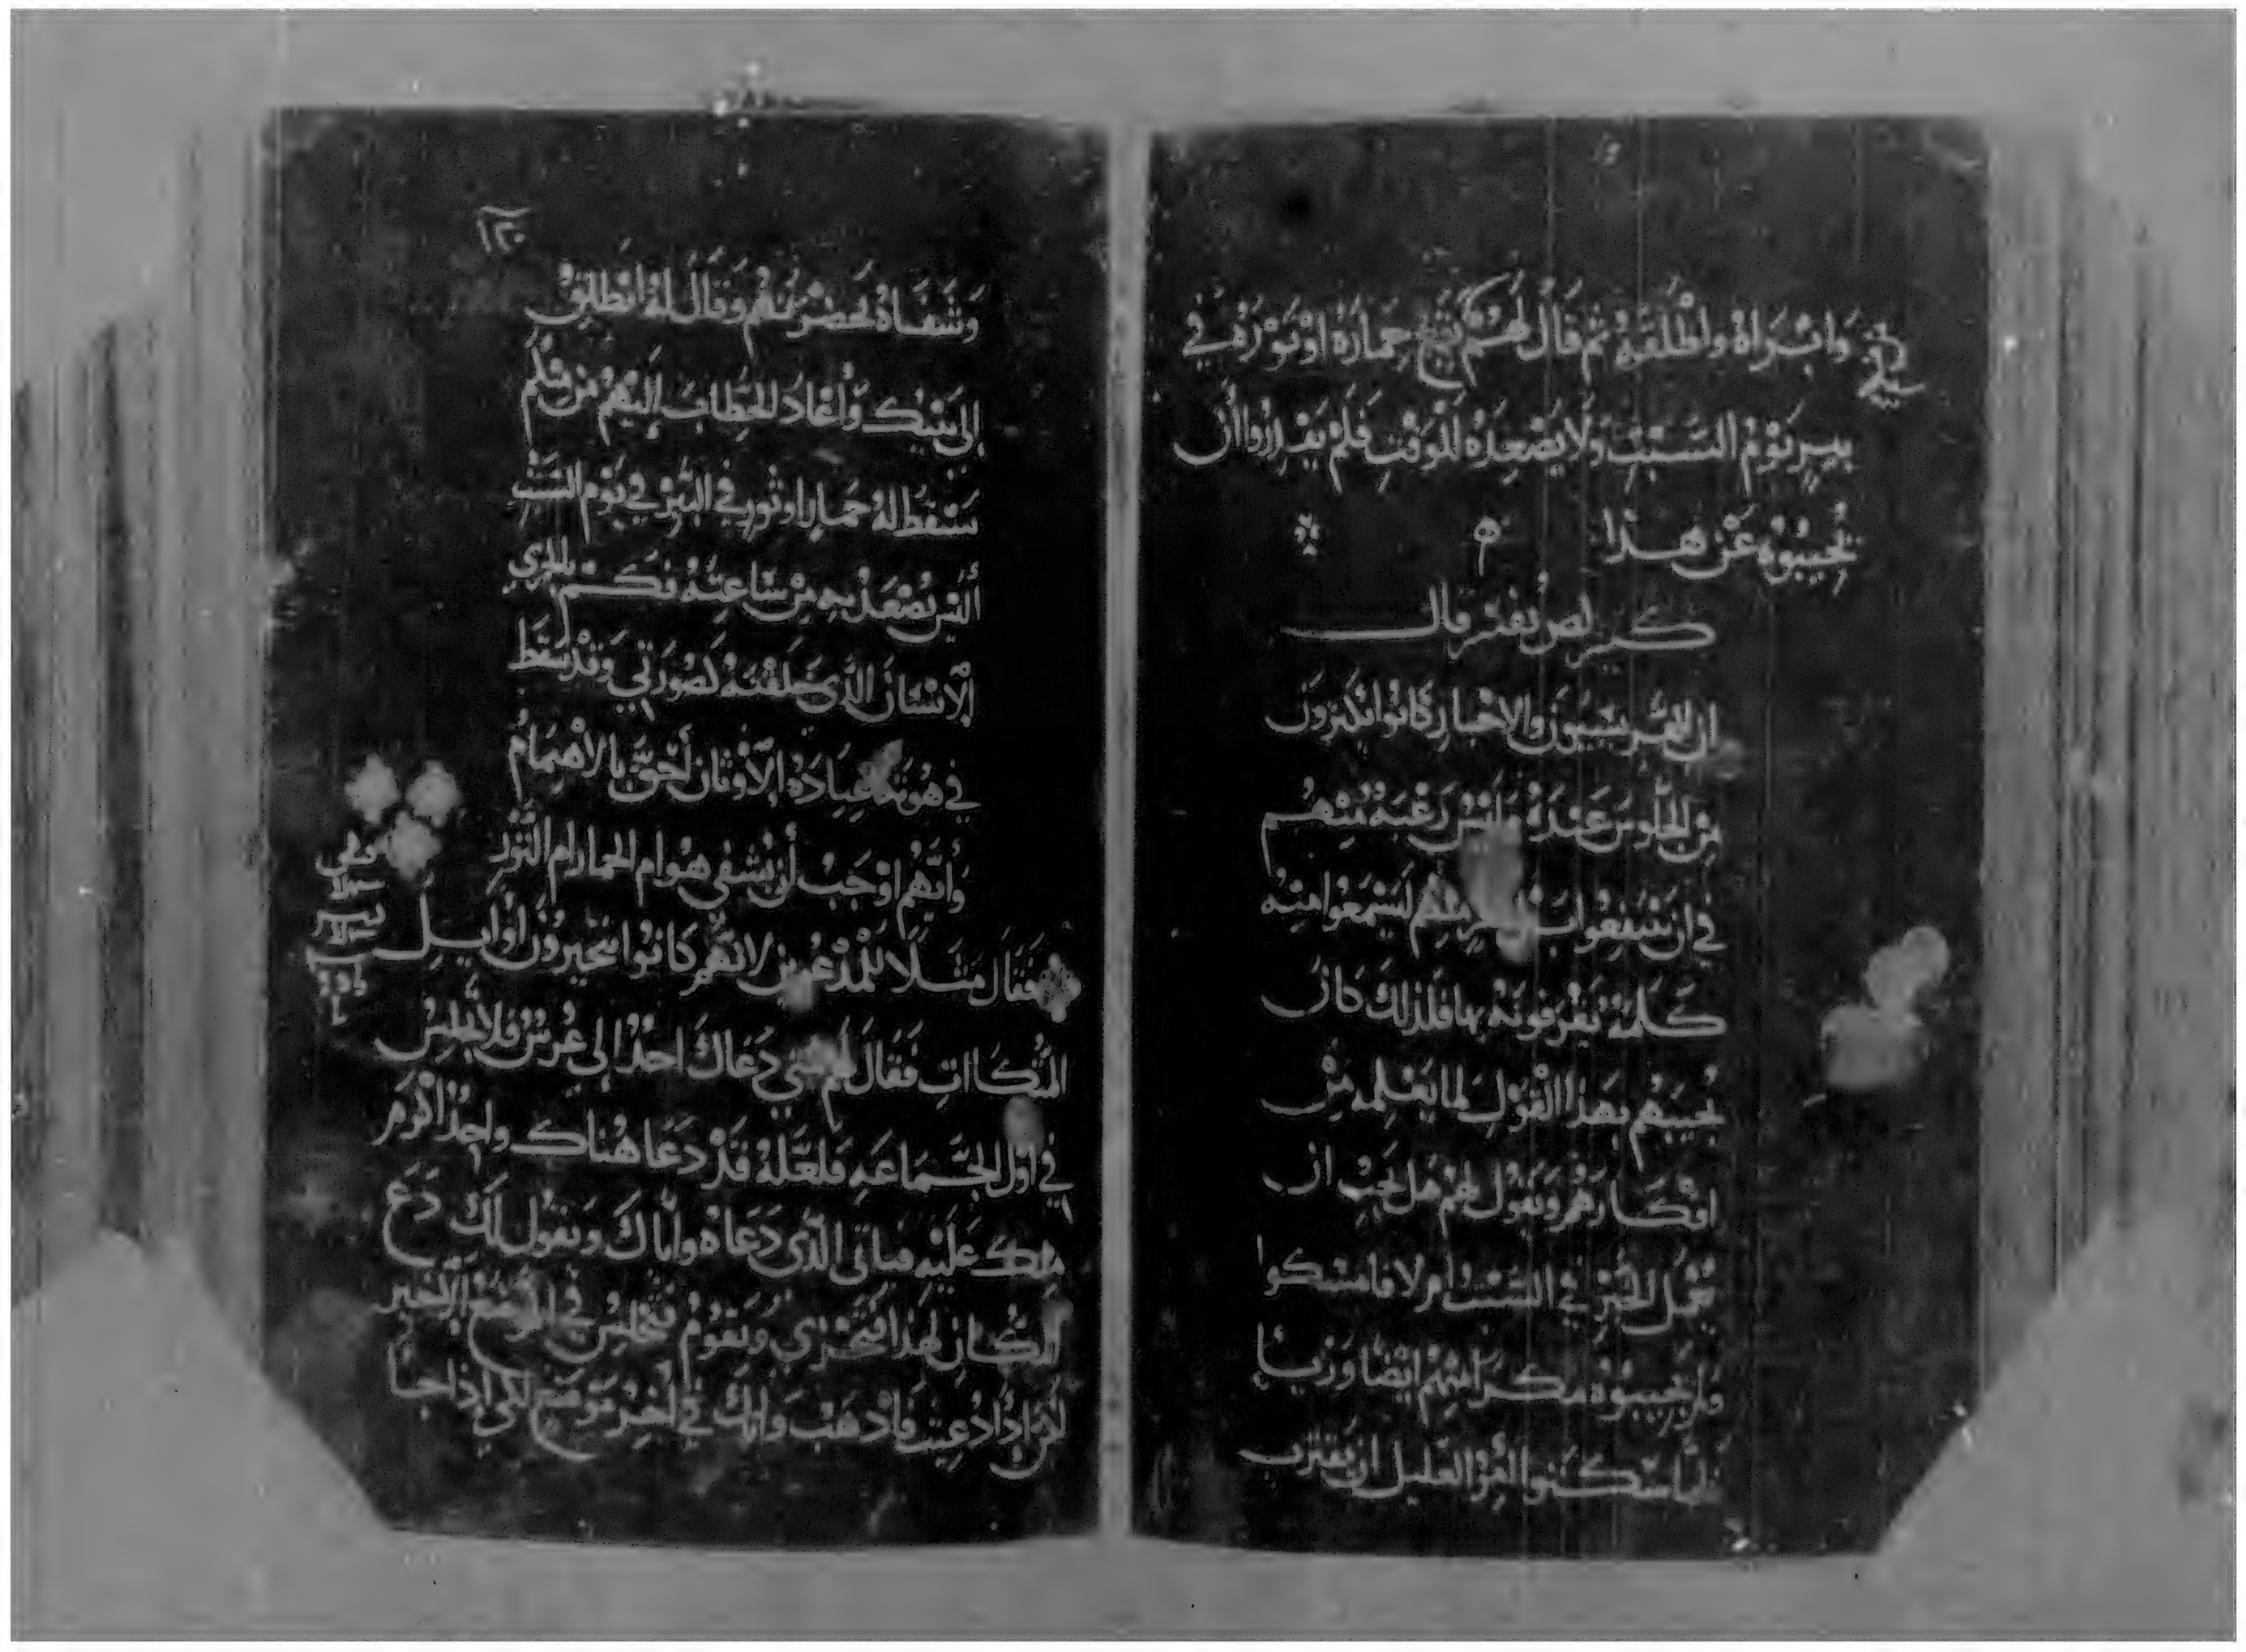 وابراه واطلقه ثم قال لهم يقع حماره او ثوره في
بير يوم السبت ولا يصعده للوقت فلم يقدروا ان
يجيبوه عن هذا
كيرلص يفسر قال
ان الفريسيون والاحبار كانوا يكثرون
من الجلوس عنده وليس رغبة منهم
في ان ينتفعوا بل ليسمعوا منه
كلمة يقرفونه بها فلذلك كان
يجيبهم بهذا القول لما يعلمه من
افكارهم ويقول لهم هل يجب ان
يعمل الخير في السبت ام لا فامسكوا
ولم يجيبوه مكرا منهم ايضا وريا
فلما سكتوا امر العليل ان يقترب
١٣٠
وشفاه بحضرتهم وقال له انطلق
إلى بيتك وأعاد الخطاب إليهم من فيكم
يسقط له حمارا او ثور في البير في يوم السبت
أليس يصعد به من ساعته فكم بالحري
الانسان الذي خلقته لصورتي وقد سقط
في هوته عبادة الأوثان أحق بالاهتمام
وأيهم اوجب أن يشفى هو ام الحمار ام الثور
فقال مثلا للمدعوين لانهم كانوا يتخيرون اوايل
المتكاات فقال لهم متى دعاك احد إلى عرس فلا تجلس
في اول الجماعه فلعله قد دعا هناك واحد اكرم
منك عليه فياتي الذي دعاه واياك ويقول لك دع
المكان لهذا فتخزى وتقوم فتجلس في الموضع الأخير
لكن إذا دعيت فاذهب واتك في اخر موضع لكي إذا جا